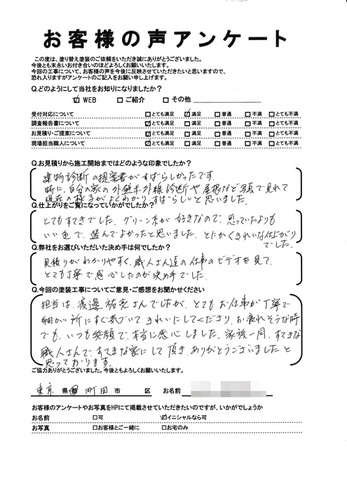 お客様の声アンケート
この度は、塗り替え塗装のご依頼をいただき誠にありがとうございました。
今後とも末永いお付き合いのほどよろしくお願いいたします。
今回の工事について、お客様の声を今後に反映させていただきたいと思いますので、
恐れ入りますがアンケートのご記入をお願い申し上げます。
Q.どのようにして当社をお知りになりましたか?
☑WEB □ご紹介 □その他
受付対応について □とても満足 ☑満足 □普通 □不満 □とても不満
調査報告書について ☑とても満足 □満足 □普通 □不満 □とても不満
お見積り・ご提案について ☑とても満足 □満足 □普通 □不満 □とても不満
現場担当職人について ☑とても満足 □満足 □普通 □不満 □とても不満
Q.お見積りから施工開始まではどのような印象でしたか?
建物診断の提案書がすばらしかったです。
特に、自分の家の外壁赤外線診断や屋根など目で見れて
現在の様子がよくわかりすばらしいと思いました。
Q.仕上がりをご覧になっていかがでしたか?
とてもすてきでした。グリーン系が好きなので、思っていたよりも
いい色で、選んでよかったと思いました。とにかくきれいな仕上がり
でした。
Q.弊社をお選びいただいた決め手は何でしたか?
見積りがわかりやすく、職人さん達の仕事のビデオを見て、
とても丁寧で感心したのが決め手でした。
Q.今回の塗装工事についてご意見・ご感想をお聞かせください
担当は、渡邉 さんでしたが、とてもお仕事が丁寧で
細かい所にすぐ気づいて、きれいにしてくださり、お疲れそうな時
でも、いつも笑顔で、本当に感心しました。家族一同、すてきな
職人さんで、すてきな家にして頂き、ありがとうございましたと
思っております。
ご協力ありがとうございました。今後ともよろしくお願いいたします。
東京 県 町田 市 区 お名前
お客様のアンケートやお写真をHPにて掲載させていただきたいのですが、いかがでしょうか
お名前 □可 ☑イニシャルなら可
お写真 □お客様とご一緒に □お宅のみ